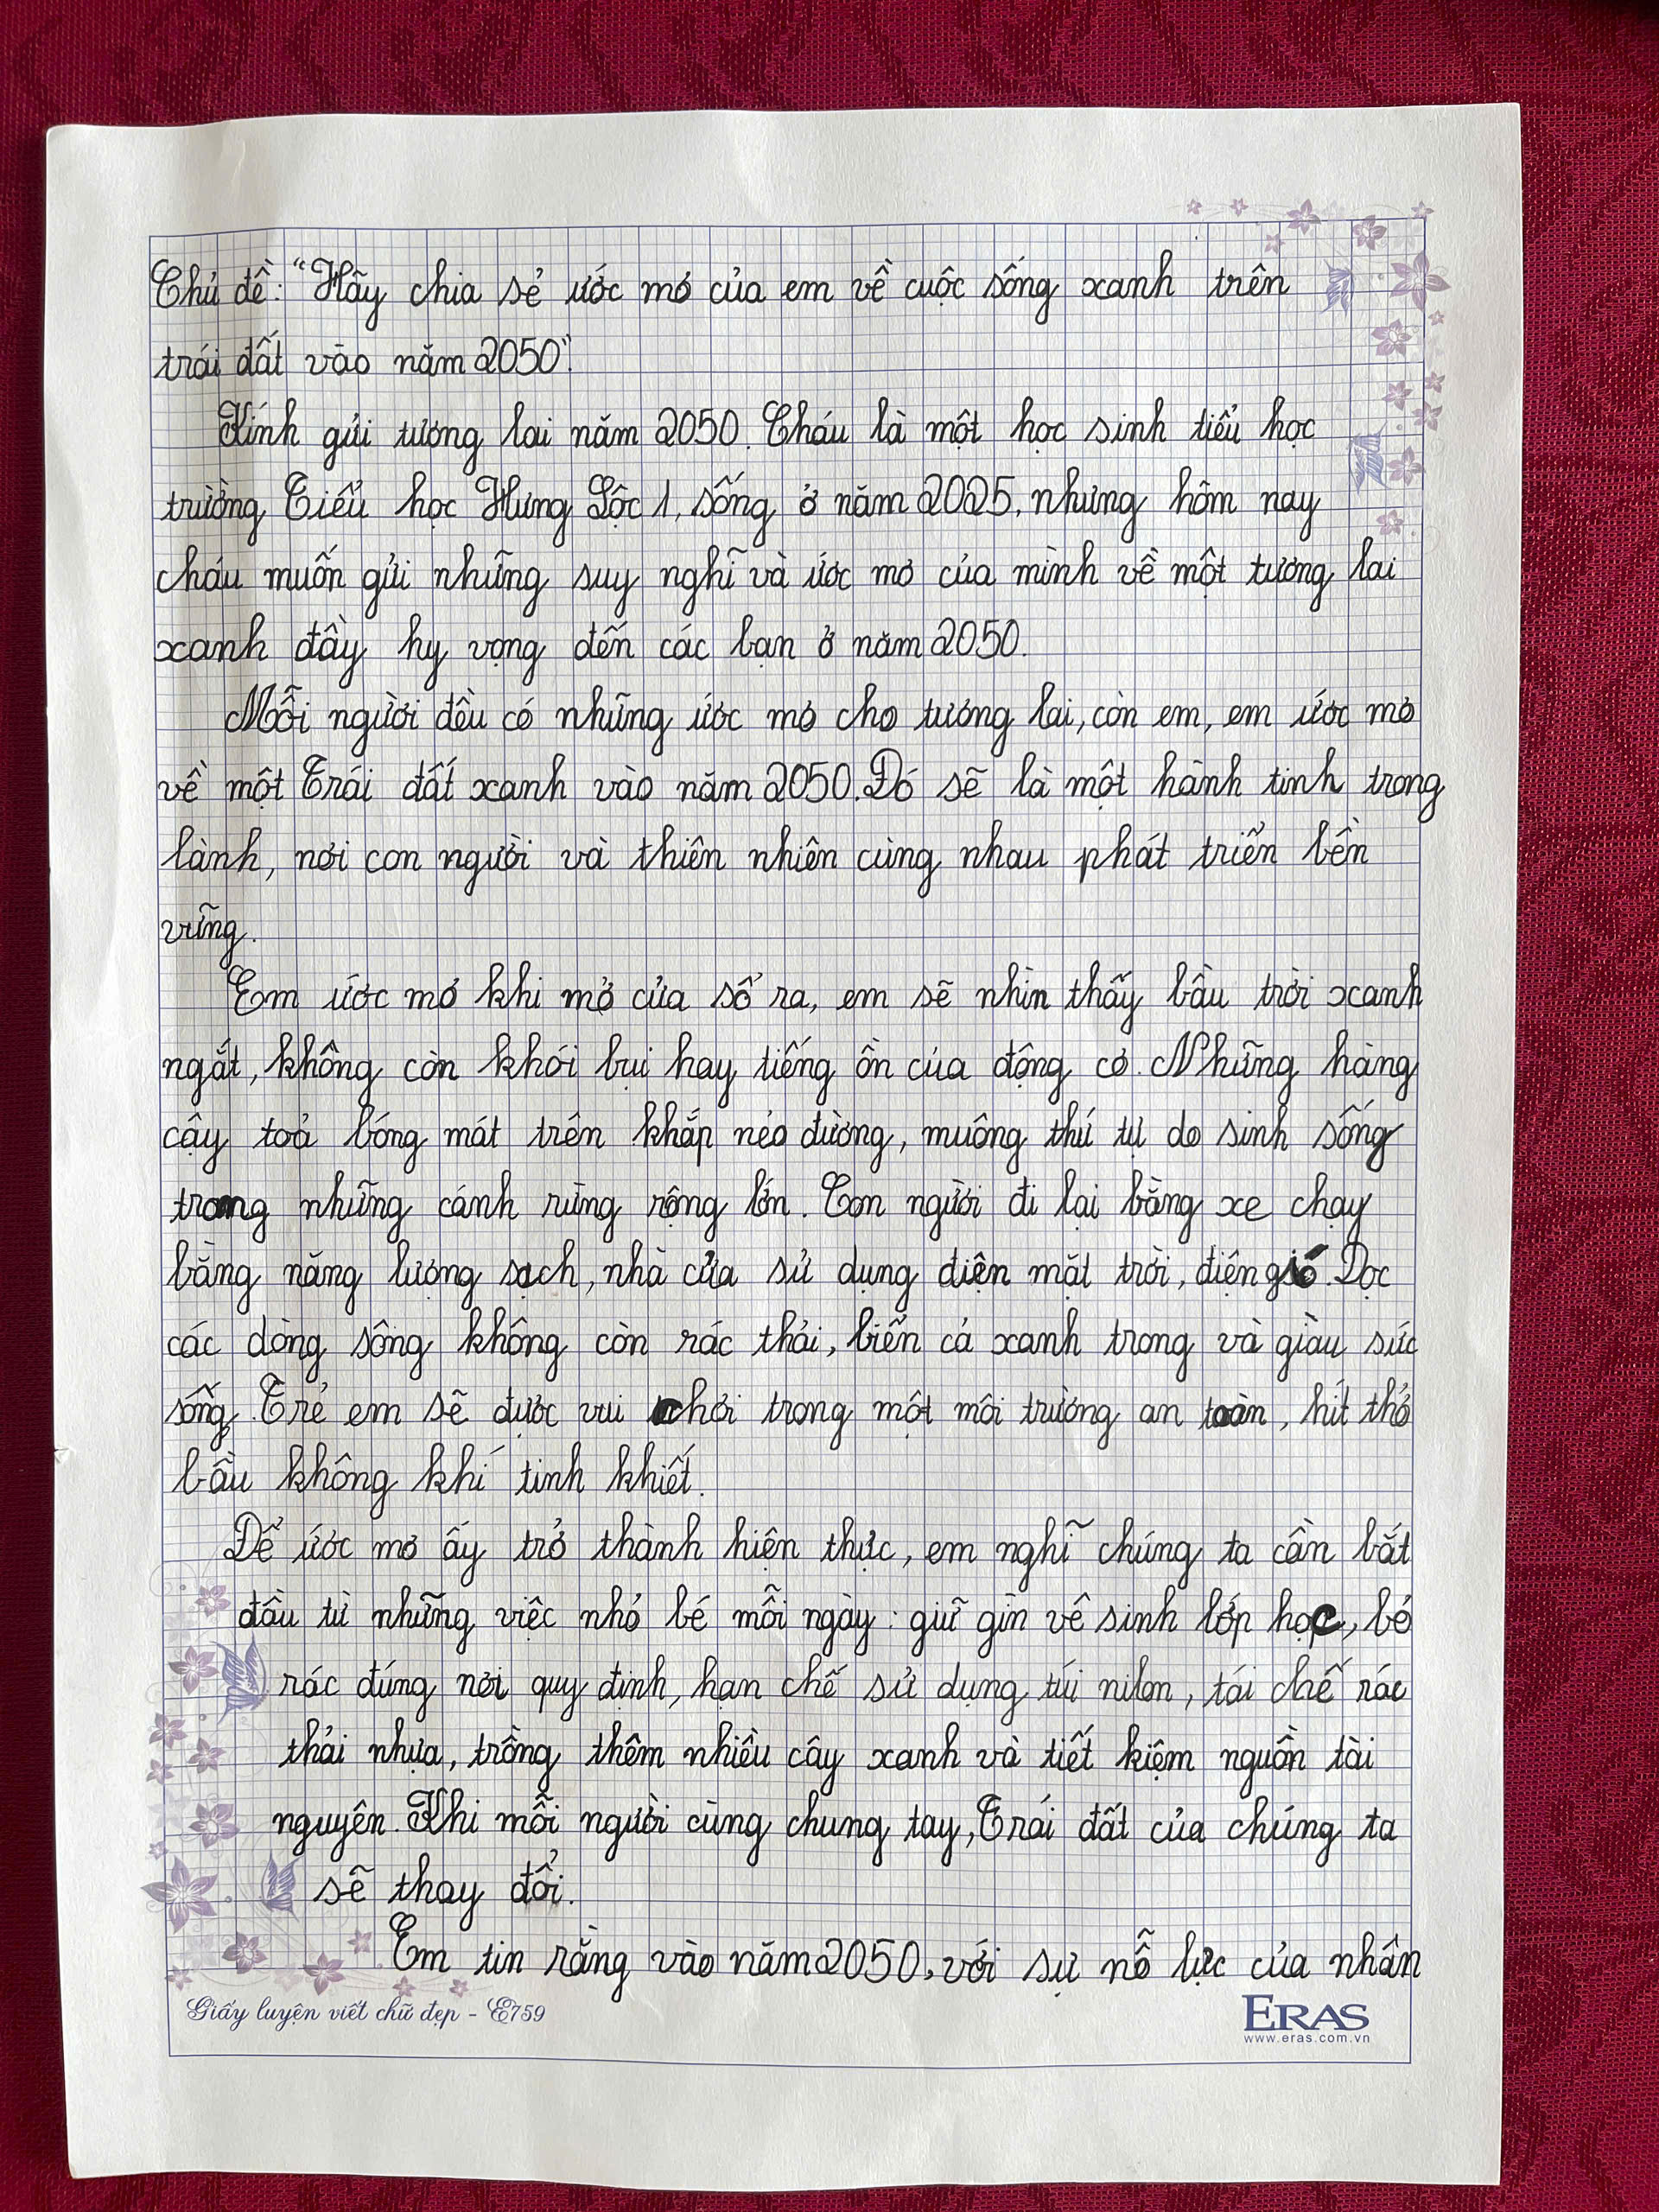 Chủ đề: "Hãy chia sẻ ước mơ của em về cuộc sống xanh trên
trái đất vào năm 2050".
Kính gửi tương lai năm 2050. Cháu là một học sinh tiểu học
trường Tiểu học Hưng Lộc 1, sống ở năm 2025, nhưng hôm nay
cháu muốn gửi những suy nghĩ và ước mơ của mình về một tương lai
xanh đầy hy vọng đến các bạn ở năm 2050.
Mỗi người đều có những ước mơ cho tương lai, còn em, em ước mơ
về một Trái đất xanh vào năm 2050. Đó sẽ là một hành tinh trong
lành, nơi con người và thiên nhiên cùng nhau phát triển bền
vững.
Em ước mơ khi mở cửa sổ ra, em sẽ nhìn thấy bầu trời xanh
ngắt, không còn khói bụi hay tiếng ồn của động cơ. Những hàng
cây toả bóng mát trên khắp nẻo đường, muông thú tự do sinh sống
trong những cánh rừng rộng lớn. Con người đi lại bằng xe chạy
bằng năng lượng sạch, nhà cửa sử dụng điện mặt trời, điện gió. Dọc
các dòng sông không còn rác thải, biển cả xanh trong và giàu sức
sống. Trẻ em sẽ được vui chơi trong một môi trường an toàn, hít thở
bầu không khí tinh khiết.
Để ước mơ ấy trở thành hiện thực, em nghĩ chúng ta cần bắt
đầu từ những việc nhỏ bé mỗi ngày: giữ gìn vệ sinh lớp học, bỏ
rác đúng nơi quy định, hạn chế sử dụng túi nilon, tái chế rác
thải nhựa, trồng thêm nhiều cây xanh và tiết kiệm nguồn tài
nguyên. Khi mỗi người cùng chung tay, Trái đất của chúng ta
sẽ thay đổi.
Em tin rằng vào năm 2050, với sự nỗ lực của nhân
Giấy luyện viết chữ đẹp - E759
ERAS
www.eras.com.vn